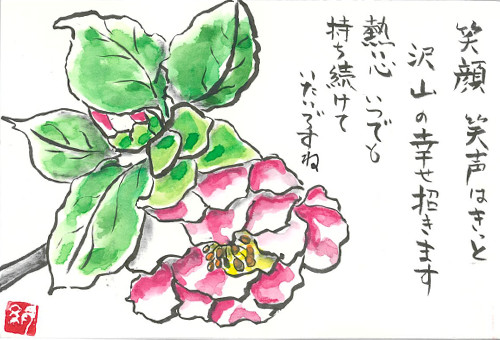 笑顔 笑声はきっと
沢山の幸せ招きます
熱い心 いつでも
持ち続けて
いたいですね